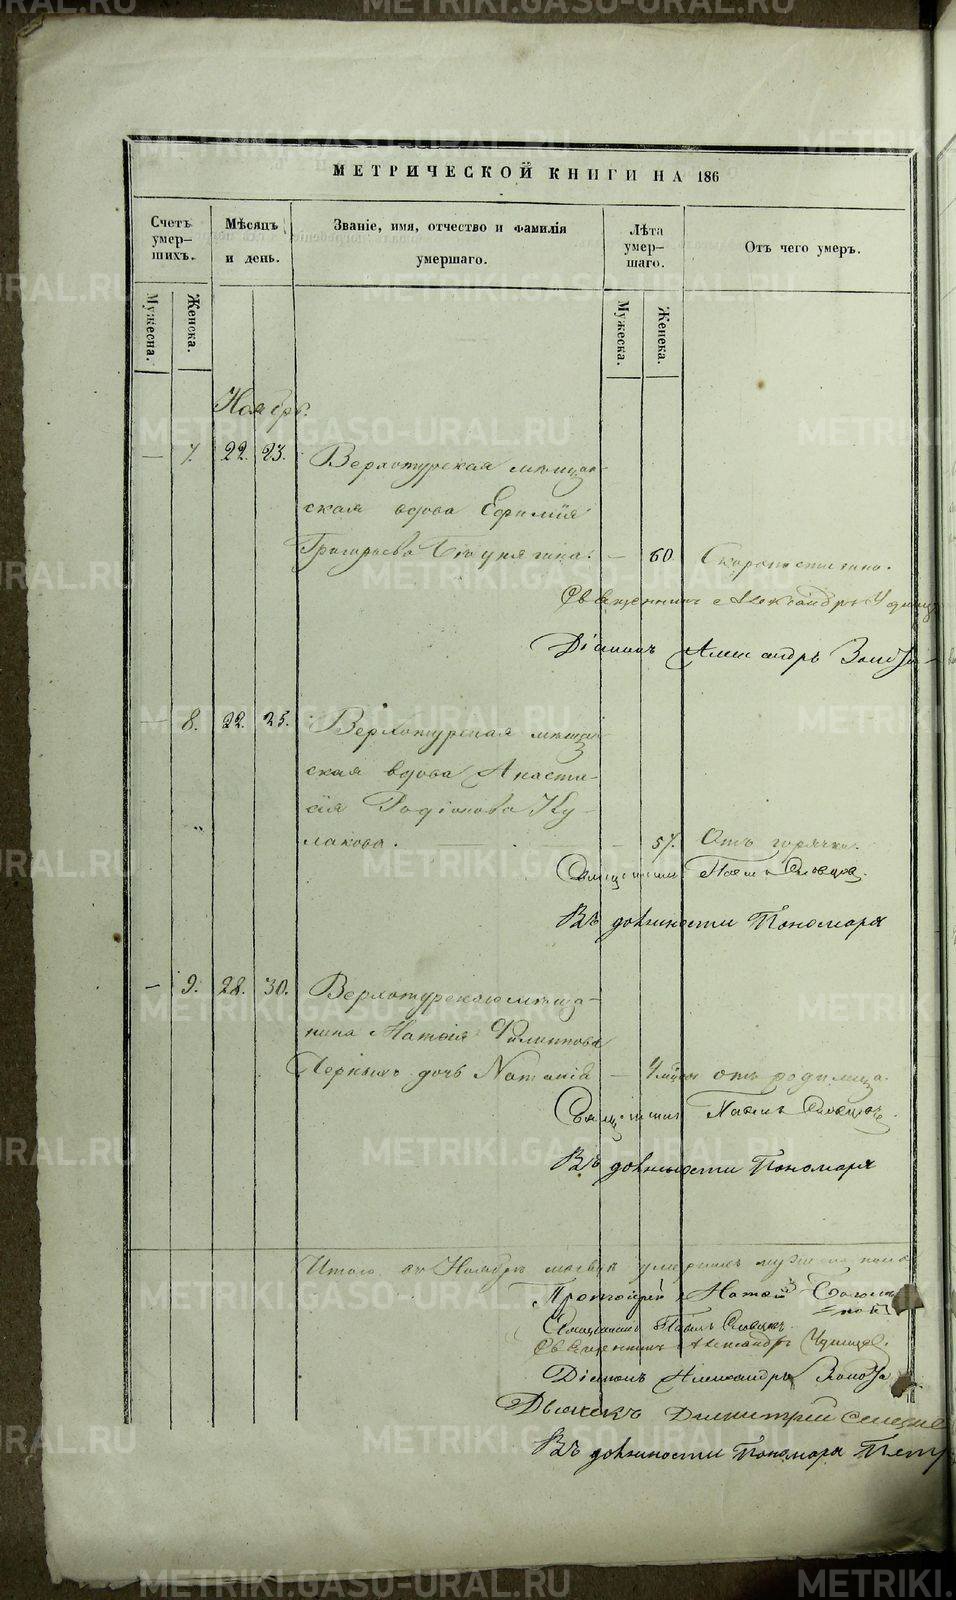 МЕТРИЧЕСКОЙ КНИГИ НА 186
Счетъ умер-шихъ.
Мѣсяцъ и день.
Званіе, имя, отчество и фамилія умершаго.
Лѣта умер-шаго.
Отъ чего умеръ.
Мужеска.
Женска.
Мужеска.
Женска.
Ноябрь.
— 7. 22. 23. Верхотурская мѣщан-
ская вдова Ефимія
Григорьева — 60. Скоропостижно.
Священникъ Александръ
Діаконъ Александръ
— 8. 22. 25. Верхотурская мѣщан
ская вдова Анаста-
сія Родіонова Ку-
лакова. — 57. Отъ горячки.
Священникъ Павелъ Словцовъ.
Въ должности Пономаря
— 9. 28. 30. Верхотурскаго мѣща-
нина Матѳія Филиппова
Черныхъ дочь Наталія — отъ родимца.
Священникъ Павелъ Словцовъ.
Въ должности Пономаря
Итого въ Ноябрѣ умершихъ
Протоіерей Матѳій
Священникъ Павелъ Словцовъ
Священникъ Александръ
Діаконъ Александръ
Дьячекъ Димитрій
Въ должности Пономаря Петр
METRIKI.GASO-URAL.RU